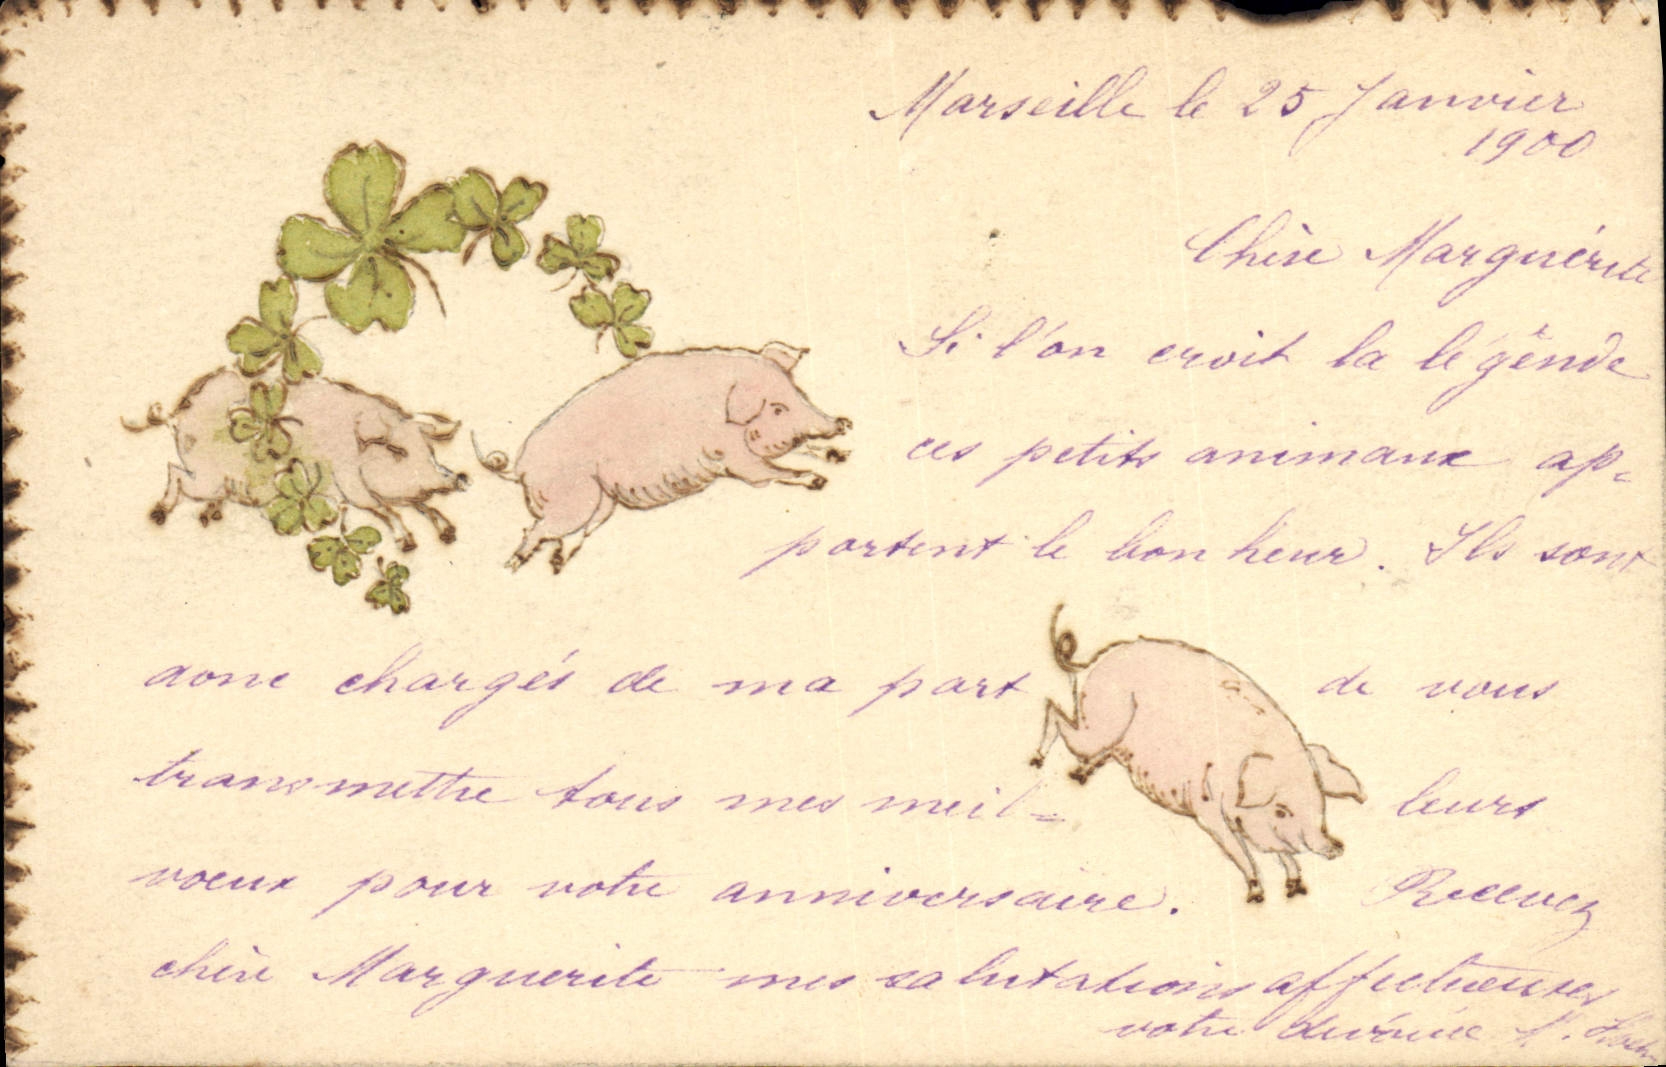 Marseille le 25 Janvier
1900
Chère Marguérite
Si l'on croit la légende
ces petits animaux ap-
portent le bonheur. Ils sont
donc chargés de ma part de vous
transmettre tous mes meil= leurs
voeux pour votre anniversaire. Recevez
chère Marguerite mes salutations affectueuses
votre dévouée